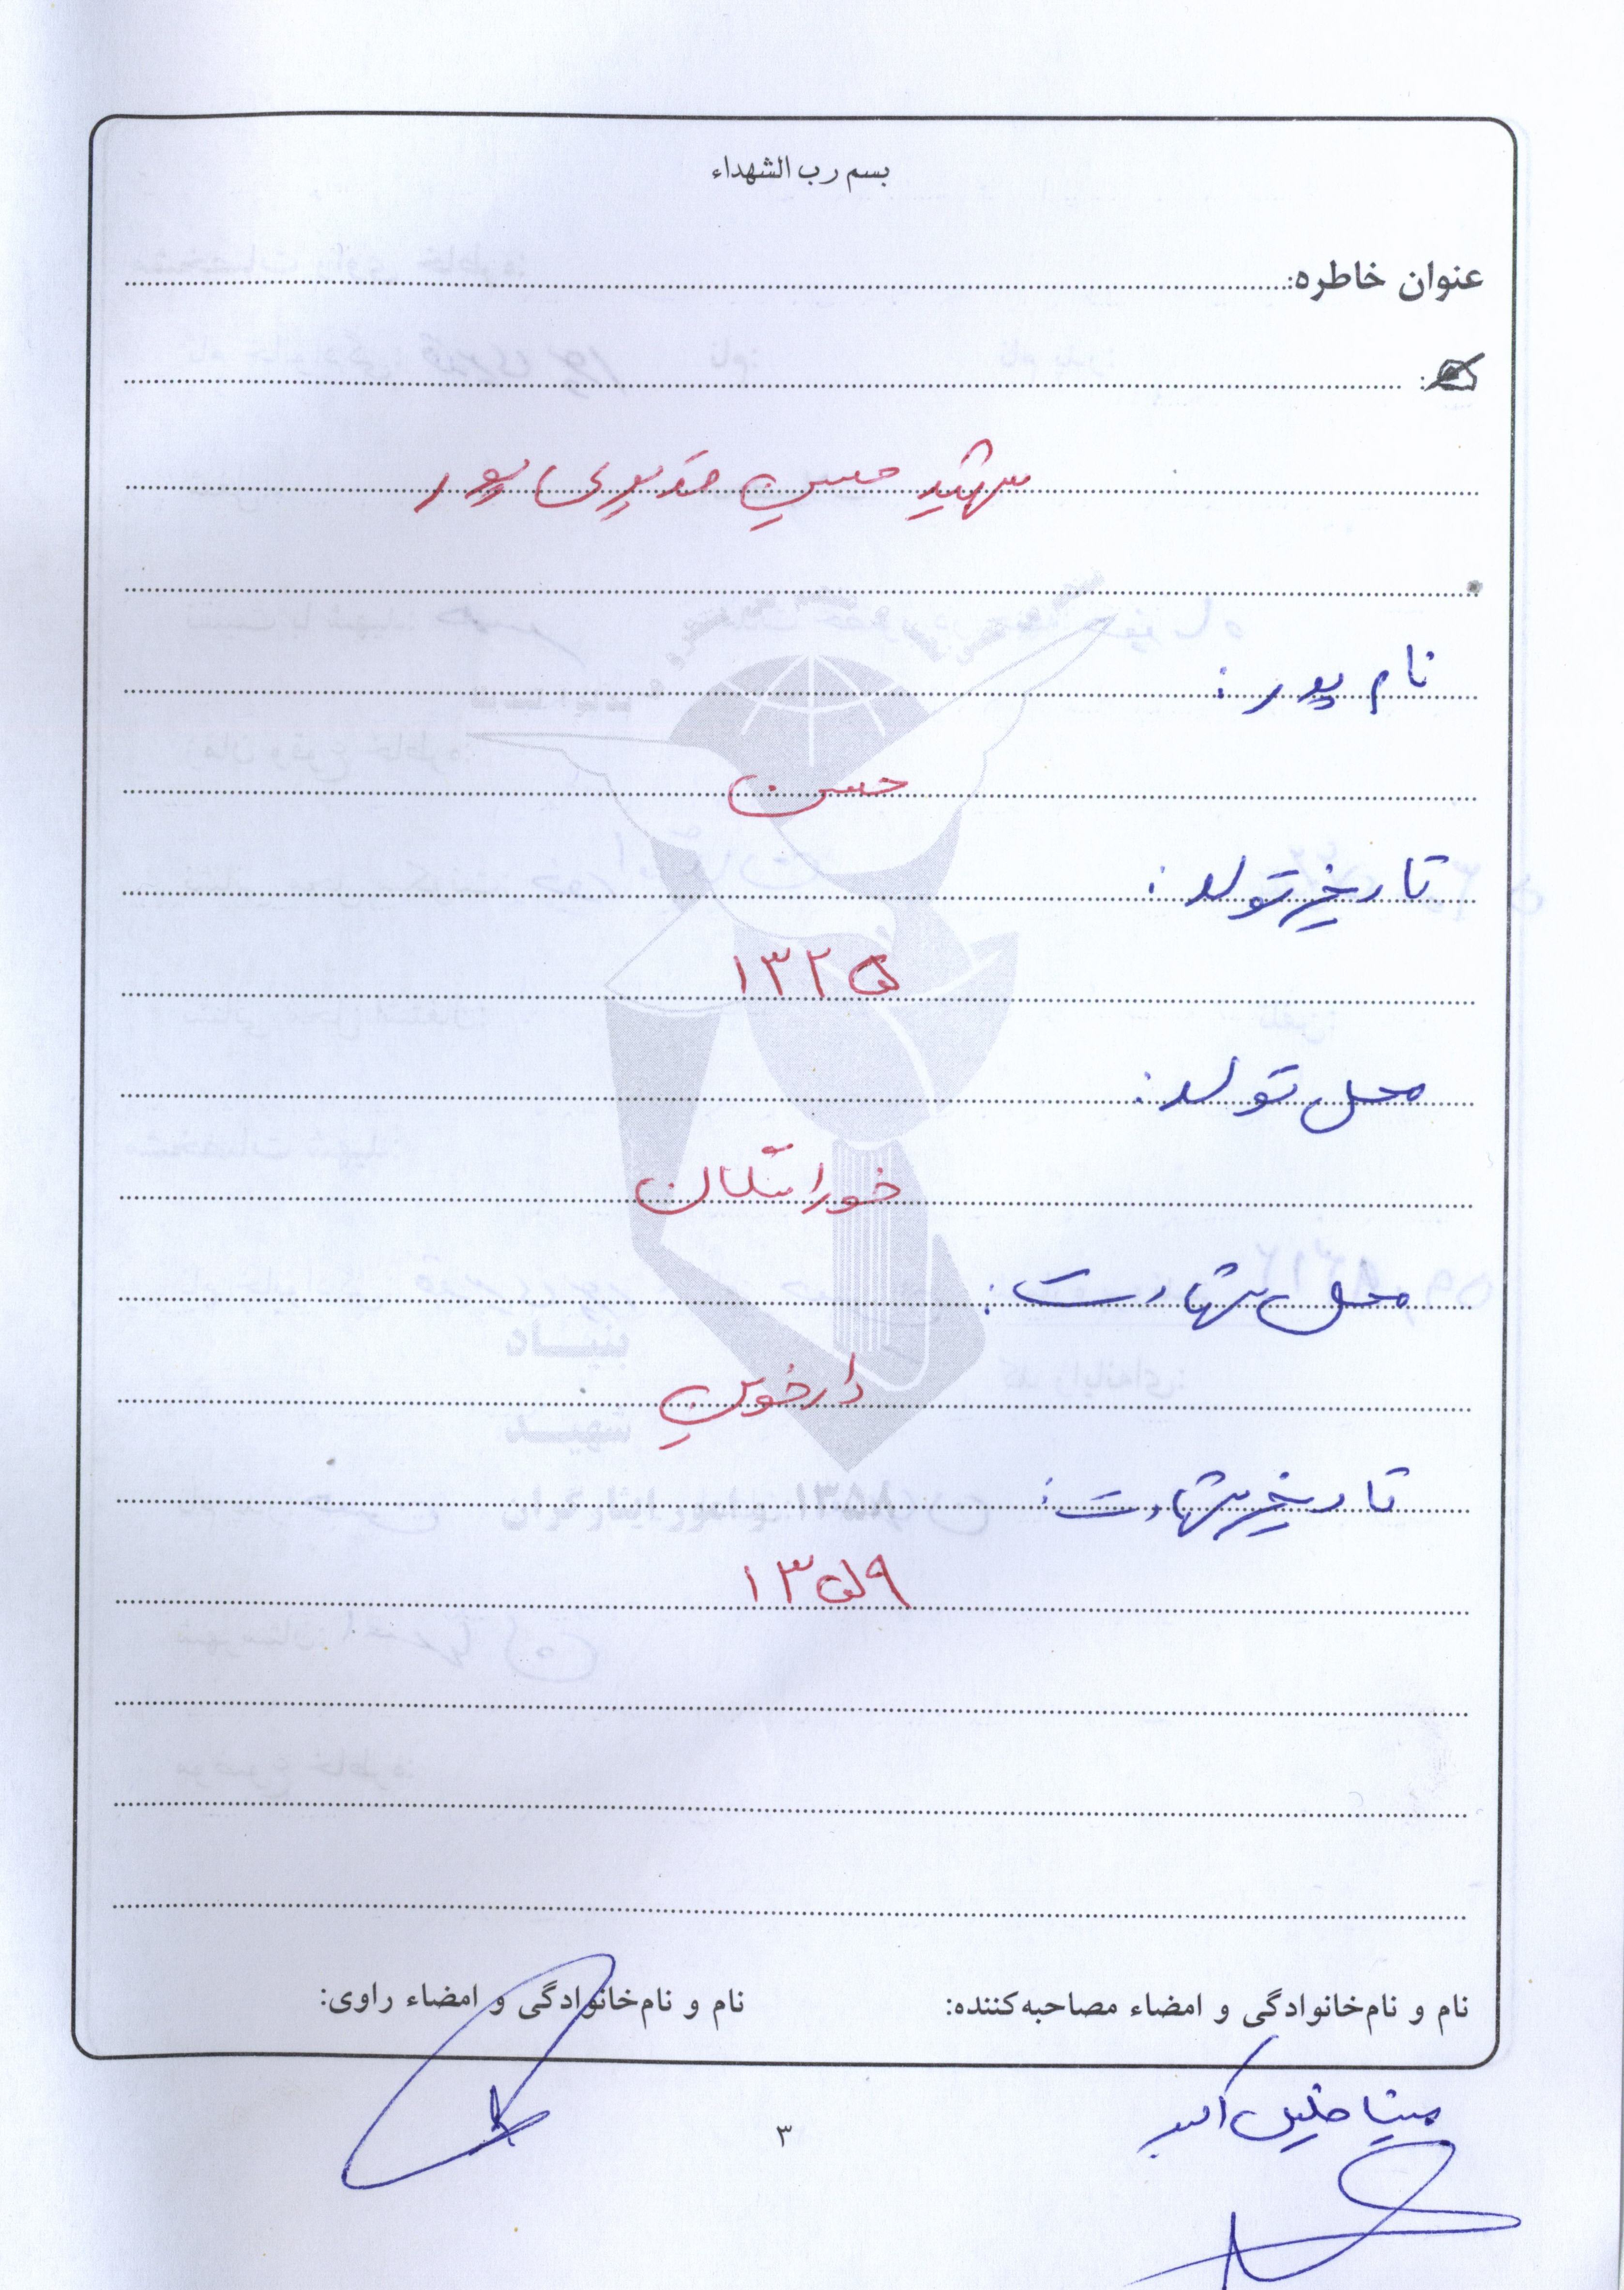 بسم رب الشهداء
عنوان خاطره:
شهید حسین قدیری پور
نام پدر:
حسن
تاریخ تولد:
۱۳۲۵
محل تولد:
خوراسگان
محل شهادت:
دارخوین
تاریخ شهادت:
۱۳۵۹
نام و نام‌خانوادگی و امضاء مصاحبه‌کننده: نام و نام‌خانوادگی و امضاء راوی:
مینا خلیل اکبر
۳